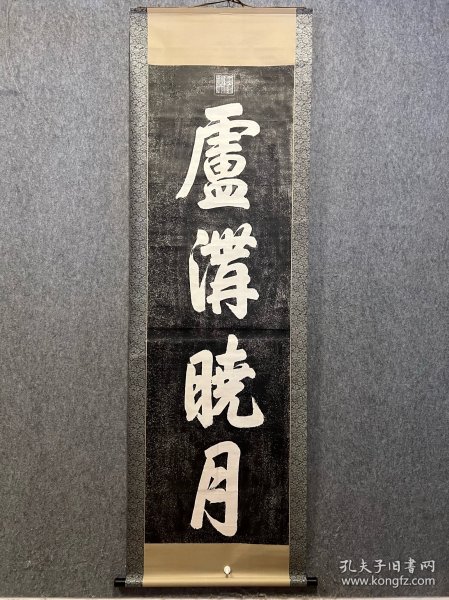 盧溝曉月
孔夫子旧书网
www.kongfz.com